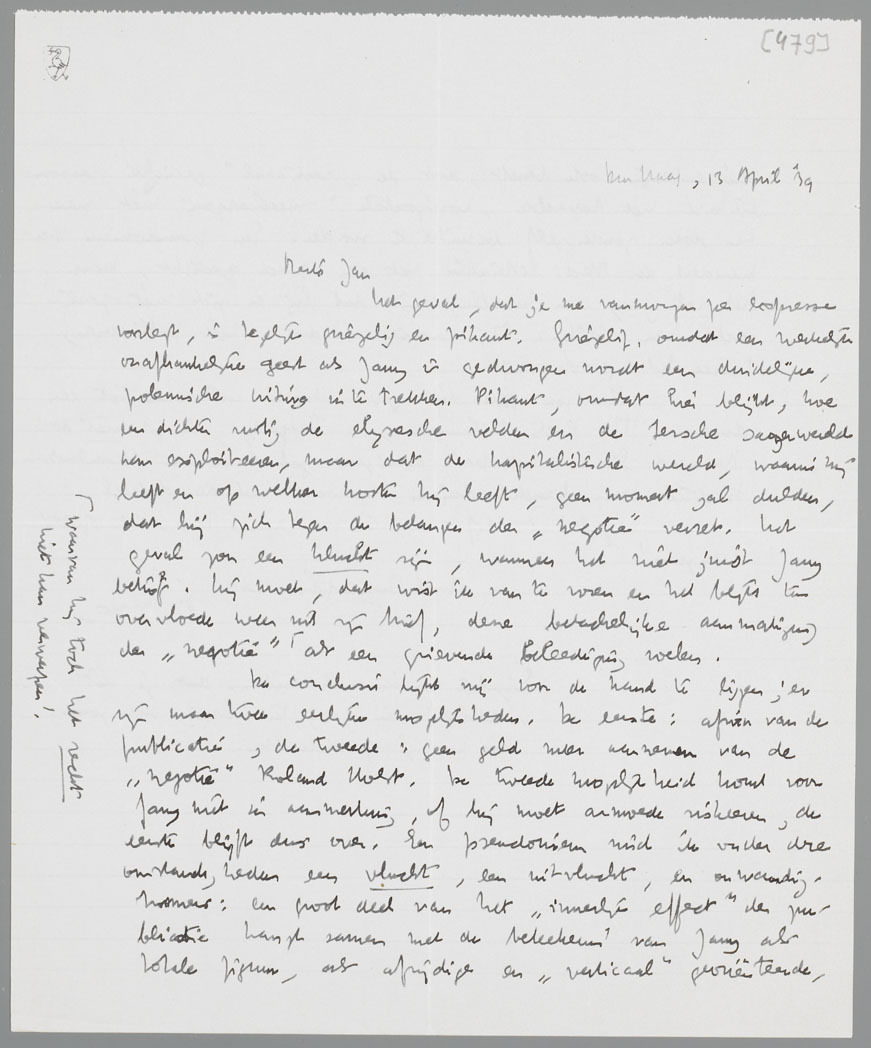 [479]
Den Haag, 13 April '39
Beste Jan
Het geval, dat je me vanmorgen per expresse
voorlegt, is tegelijk griezelig en pikant. Griezelig, omdat een werkelijk
onafhankelijke geest als Jany is gedwongen wordt een duidelijke,
polemische uiting in te trekken. Pikant, omdat hier blijkt, hoe
een dichter rustig de elyseesche velden en de Iersche sagenwereld
kan exploiteeren, maar dat de kapitalistische wereld, waarin hij
leeft en op welker kosten hij leeft, geen moment zal dulden,
dat hij zich tegen de belangen der „negotie" verzet. Het
geval zou een klucht zijn, wanneer het niet juist Jany
betrof. Hij moet, dat wist ik van te voren en het blijkt ten
overvloede weer uit zijn brief, deze belachelijke aanmatiging
der „negotie" ⌈ als een grievende beleediging voelen.
⌈ waarvan hij toch het recht
niet kan verwerpen!
De conclusie lijkt mij voor de hand te liggen; er
zijn maar twee eerlijke mogelijkheden. De eerste: afzien van de
publicatie, de tweede: geen geld meer aannemen van de
„negotie" Roland Holst. De tweede mogelijkheid komt voor
Jany niet in aanmerking, of hij moet armoede riskeeren, de
eerste blijft dus over. Een pseudoniem vind ik onder deze
omstandigheden een vlucht, een uitvlucht, en onwaardig.
Bovendien: een groot deel van het „innerlijk effect" der pu-
blicatie hangt samen met de beteekenis van Jany als
totale figuur, als afzijdige en „verticaal" georiënteerde,